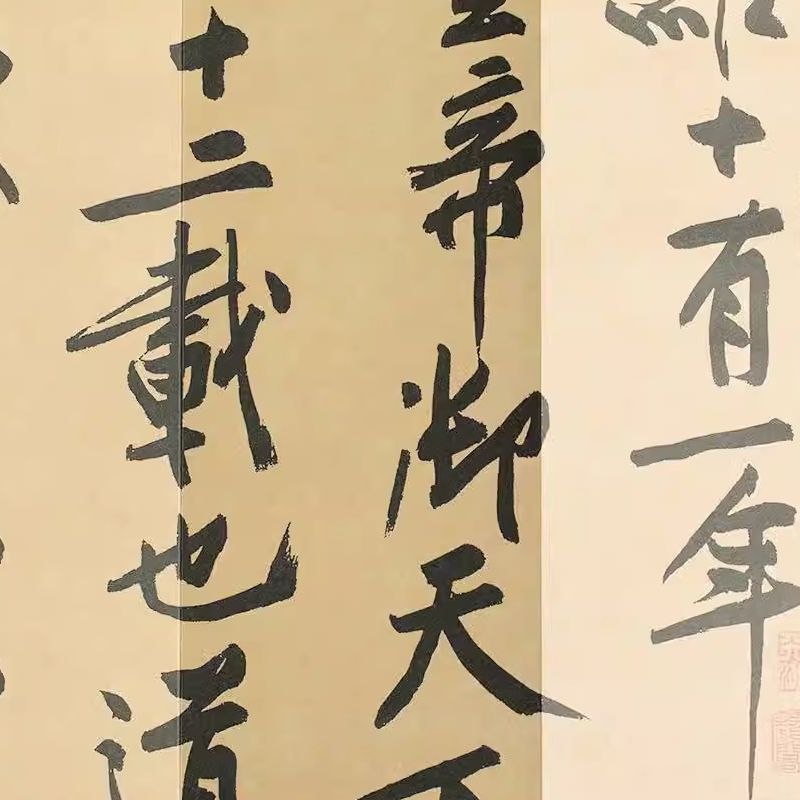 十有一年
皇帝御天下
十二載也道